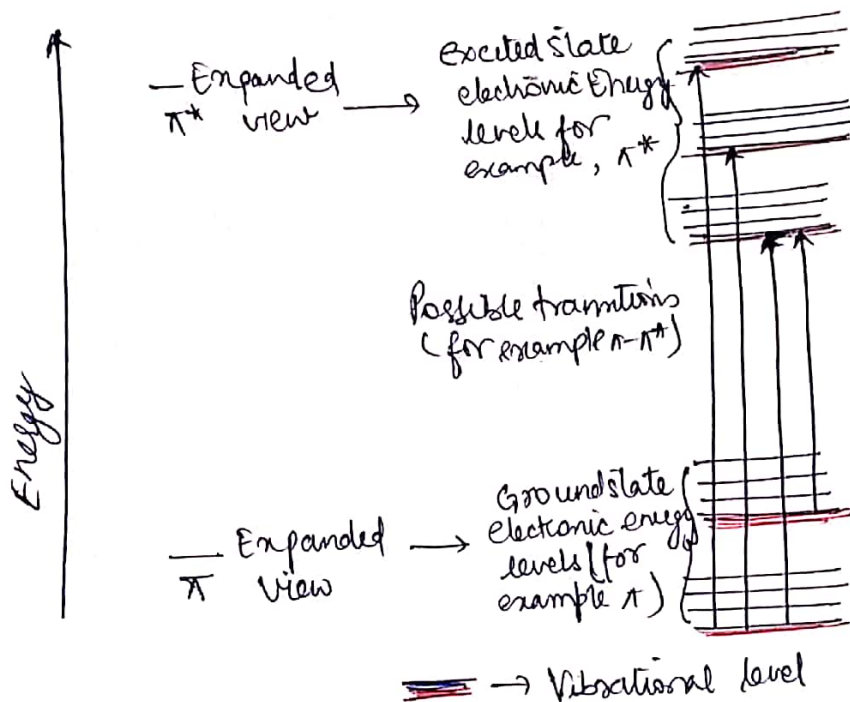 Energy
— Expanded
π* view
→
Excited state
electronic Energy
levels for
example, π*
Possible transitions
(for example π-π*)
— Expanded
π view
→
Ground state
electronic energy
levels (for
example π)
→ Vibrational level